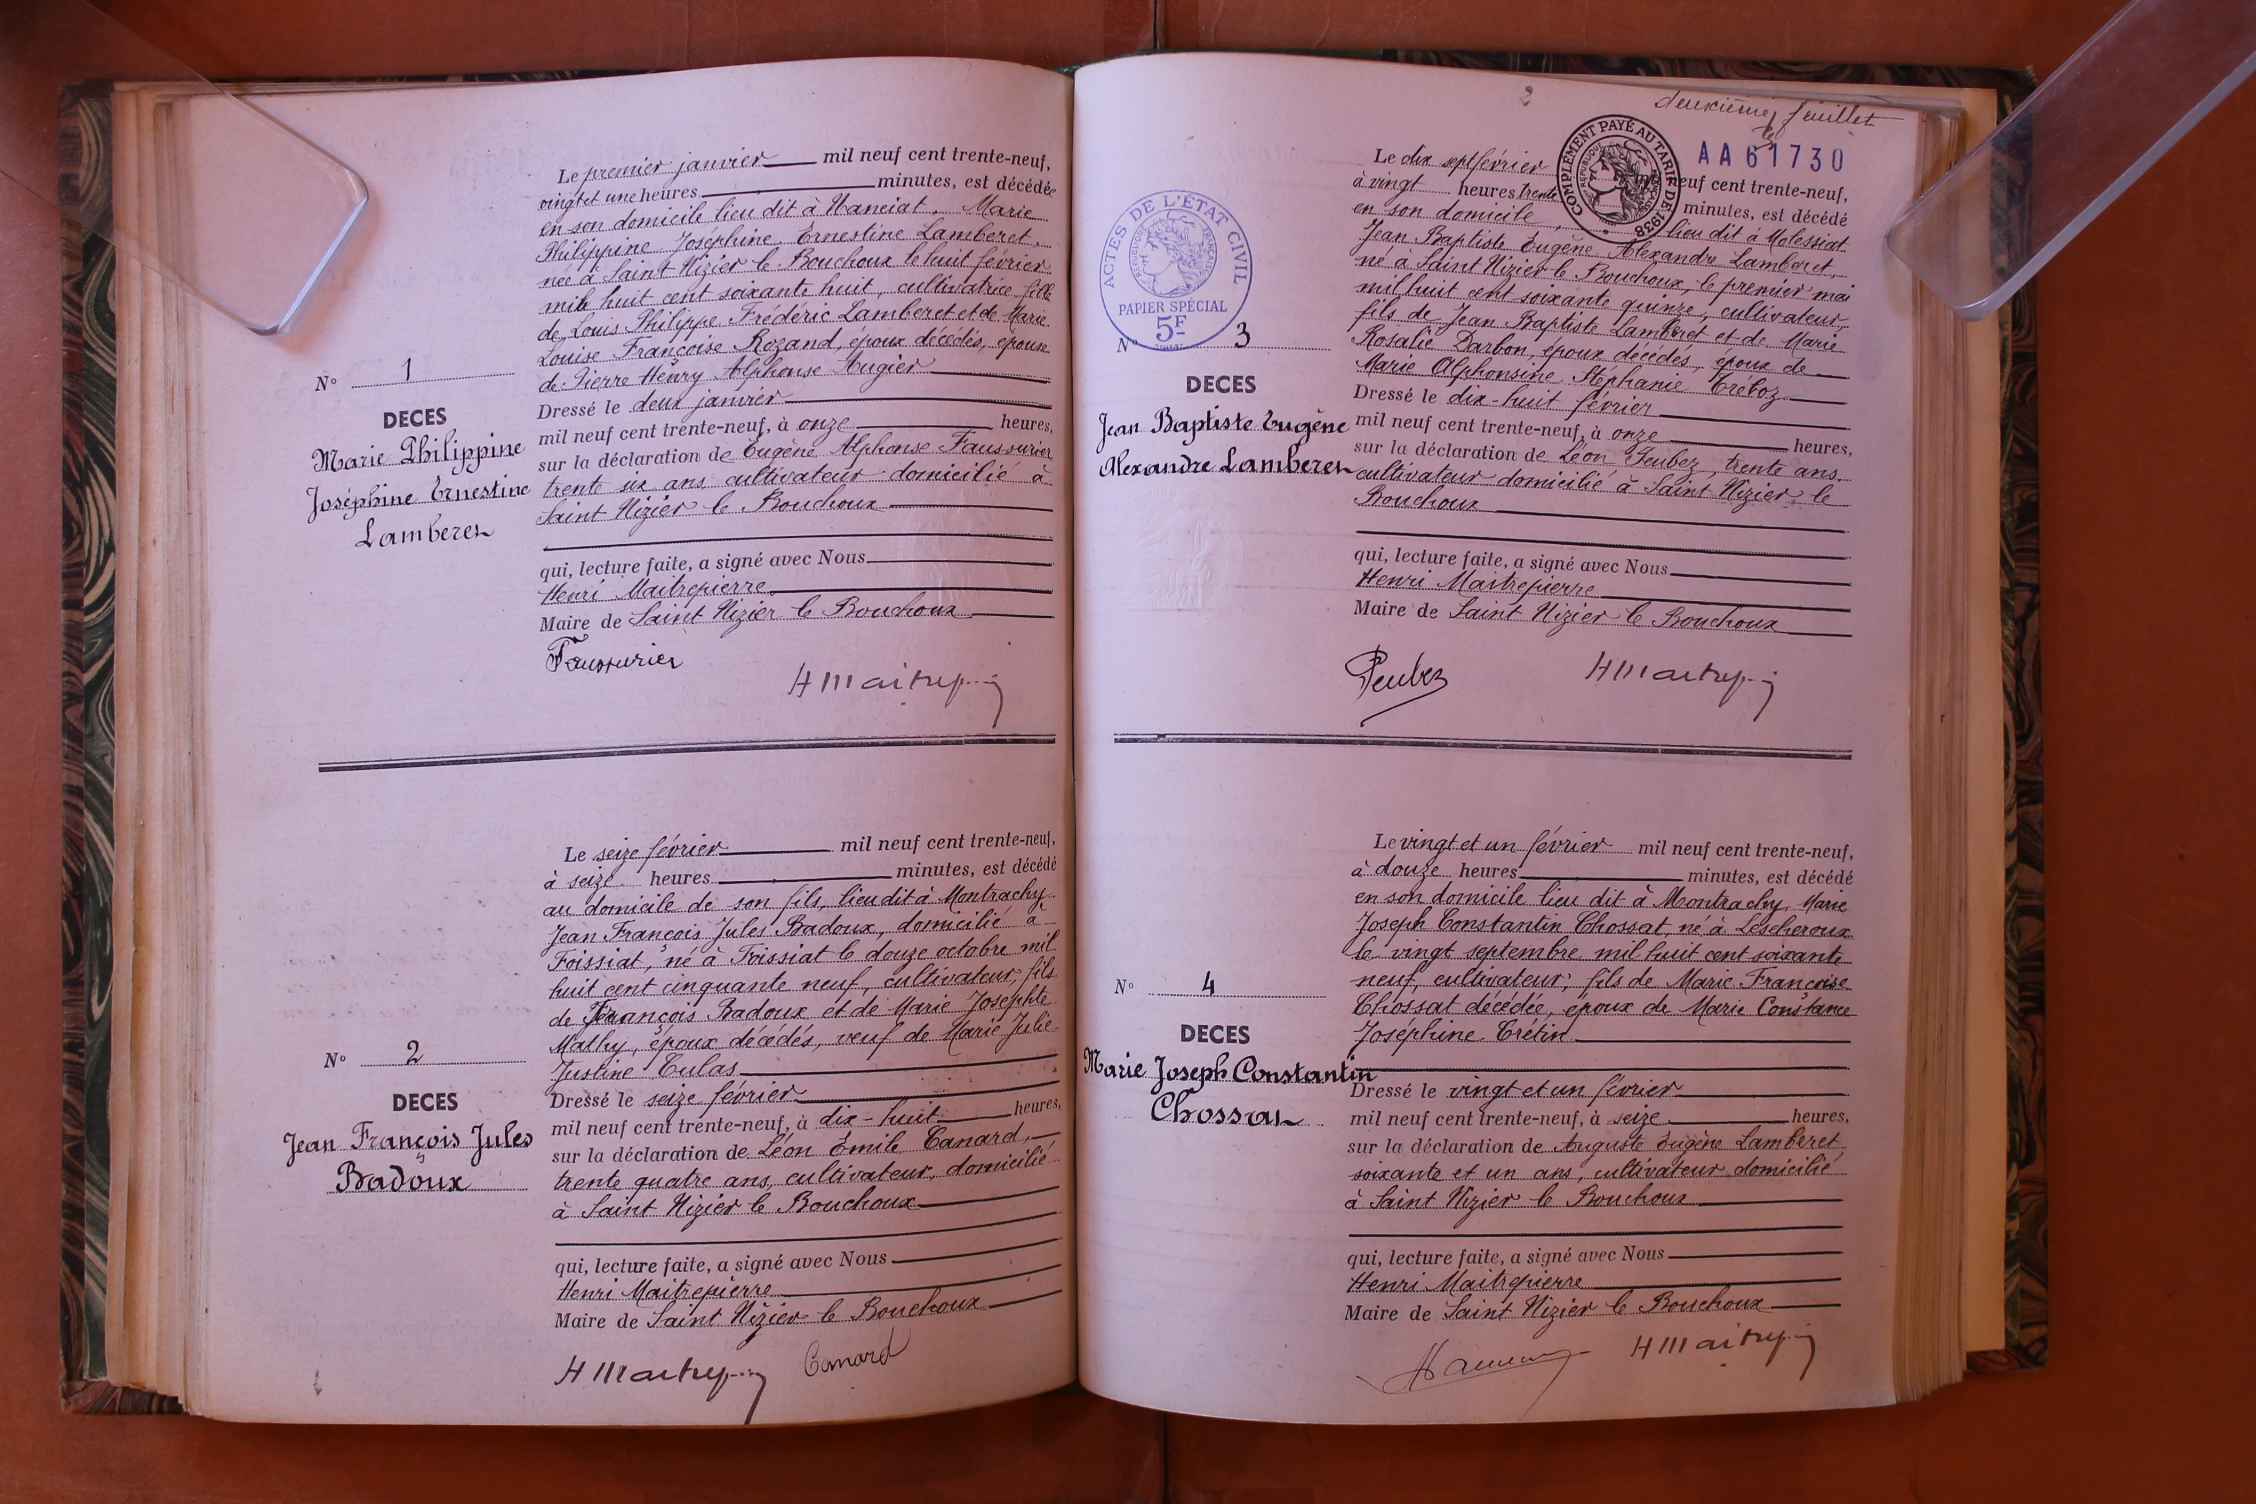 Le premier janvier mil neuf cent trente-neuf,
vingt et une heures minutes, est décédée
en son domicile lieu dit à Hanciat, Marie
Philippine Joséphine Ernestine Lamberet,
née à Saint Nizier le Bouchoux le huit février
mil huit cent soixante huit, cultivatrice fille
de Louis Philippe Frédéric Lamberet et de Marie
Louise Françoise Rozand, époux décédés, épouse
de Pierre Henry Alphonse Augier
N° 1
DECES
Marie Philippine
Joséphine Ernestine
Lamberet
Dressé le deux janvier
mil neuf cent trente-neuf, à onze heures,
sur la déclaration de Eugène Alphonse Faussurier
trente six ans cultivateur domicilié à
Saint Nizier le Bouchoux
qui, lecture faite, a signé avec Nous
Henri Maitrepierre
Maire de Saint Nizier le Bouchoux
Faussurier
HMaitrep
Le seize février mil neuf cent trente-neuf,
à seize heures minutes, est décédé
au domicile de son fils, lieu dit à Montrachy
Jean François Jules Badoux, domicilié à
Foissiat, né à Foissiat le douze octobre mil
huit cent cinquante neuf, cultivateur, fils
de François Badoux et de Marie Josephte
Mathy, époux décédés, veuf de Marie Julie
Justine Culas
N° 2
DECES
Jean François Jules
Badoux
Dressé le seize février
mil neuf cent trente-neuf, à dix-huit heures,
sur la déclaration de Léon Emile Canard,
trente quatre ans, cultivateur, domicilié
à Saint Nizier le Bouchoux
qui, lecture faite, a signé avec Nous
Henri Maitrepierre
Maire de Saint Nizier le Bouchoux
HMaitrep
Canard
deuxième feuillet
COMPLÉMENT PAYÉ AU TARIF DE 1938
AA61730
ACTES DE L'ÉTAT CIVIL
PAPIER SPÉCIAL
5F
Le dix sept février neuf cent trente-neuf,
à vingt heures trente minutes, est décédé
en son domicile, lieu dit à Molessiat
Jean Baptiste Eugène Alexandre Lamberet,
né à Saint Nizier le Bouchoux, le premier mai
mil huit cent soixante quinze, cultivateur,
fils de Jean Baptiste Lamberet et de Marie
Rosalie Darbon, époux décédés, époux de
Marie Alphonsine Stéphanie Créboz
N° 3
DECES
Jean Baptiste Eugène
Alexandre Lamberet
Dressé le dix-huit février
mil neuf cent trente-neuf, à onze heures,
sur la déclaration de Léon Peubez, trente ans
cultivateur domicilié à Saint Nizier le
Bouchoux
qui, lecture faite, a signé avec Nous
Henri Maitrepierre
Maire de Saint Nizier le Bouchoux
Peubez
HMaitrep
Le vingt et un février mil neuf cent trente-neuf,
à douze heures minutes, est décédé
en son domicile lieu dit à Montrachy, Marie
Joseph Constantin Chossat, né à Lescheroux
le vingt septembre mil huit cent soixante
neuf, cultivateur, fils de Marie Françoise
Chossat décédée, époux de Marie Constance
Joséphine Crétin
N° 4
DECES
Marie Joseph Constantin
Chossat
Dressé le vingt et un février
mil neuf cent trente-neuf, à seize heures,
sur la déclaration de Auguste Eugène Lamberet
soixante et un ans, cultivateur domicilié
à Saint Nizier le Bouchoux
qui, lecture faite, a signé avec Nous
Henri Maitrepierre
Maire de Saint Nizier le Bouchoux
HMaitrep